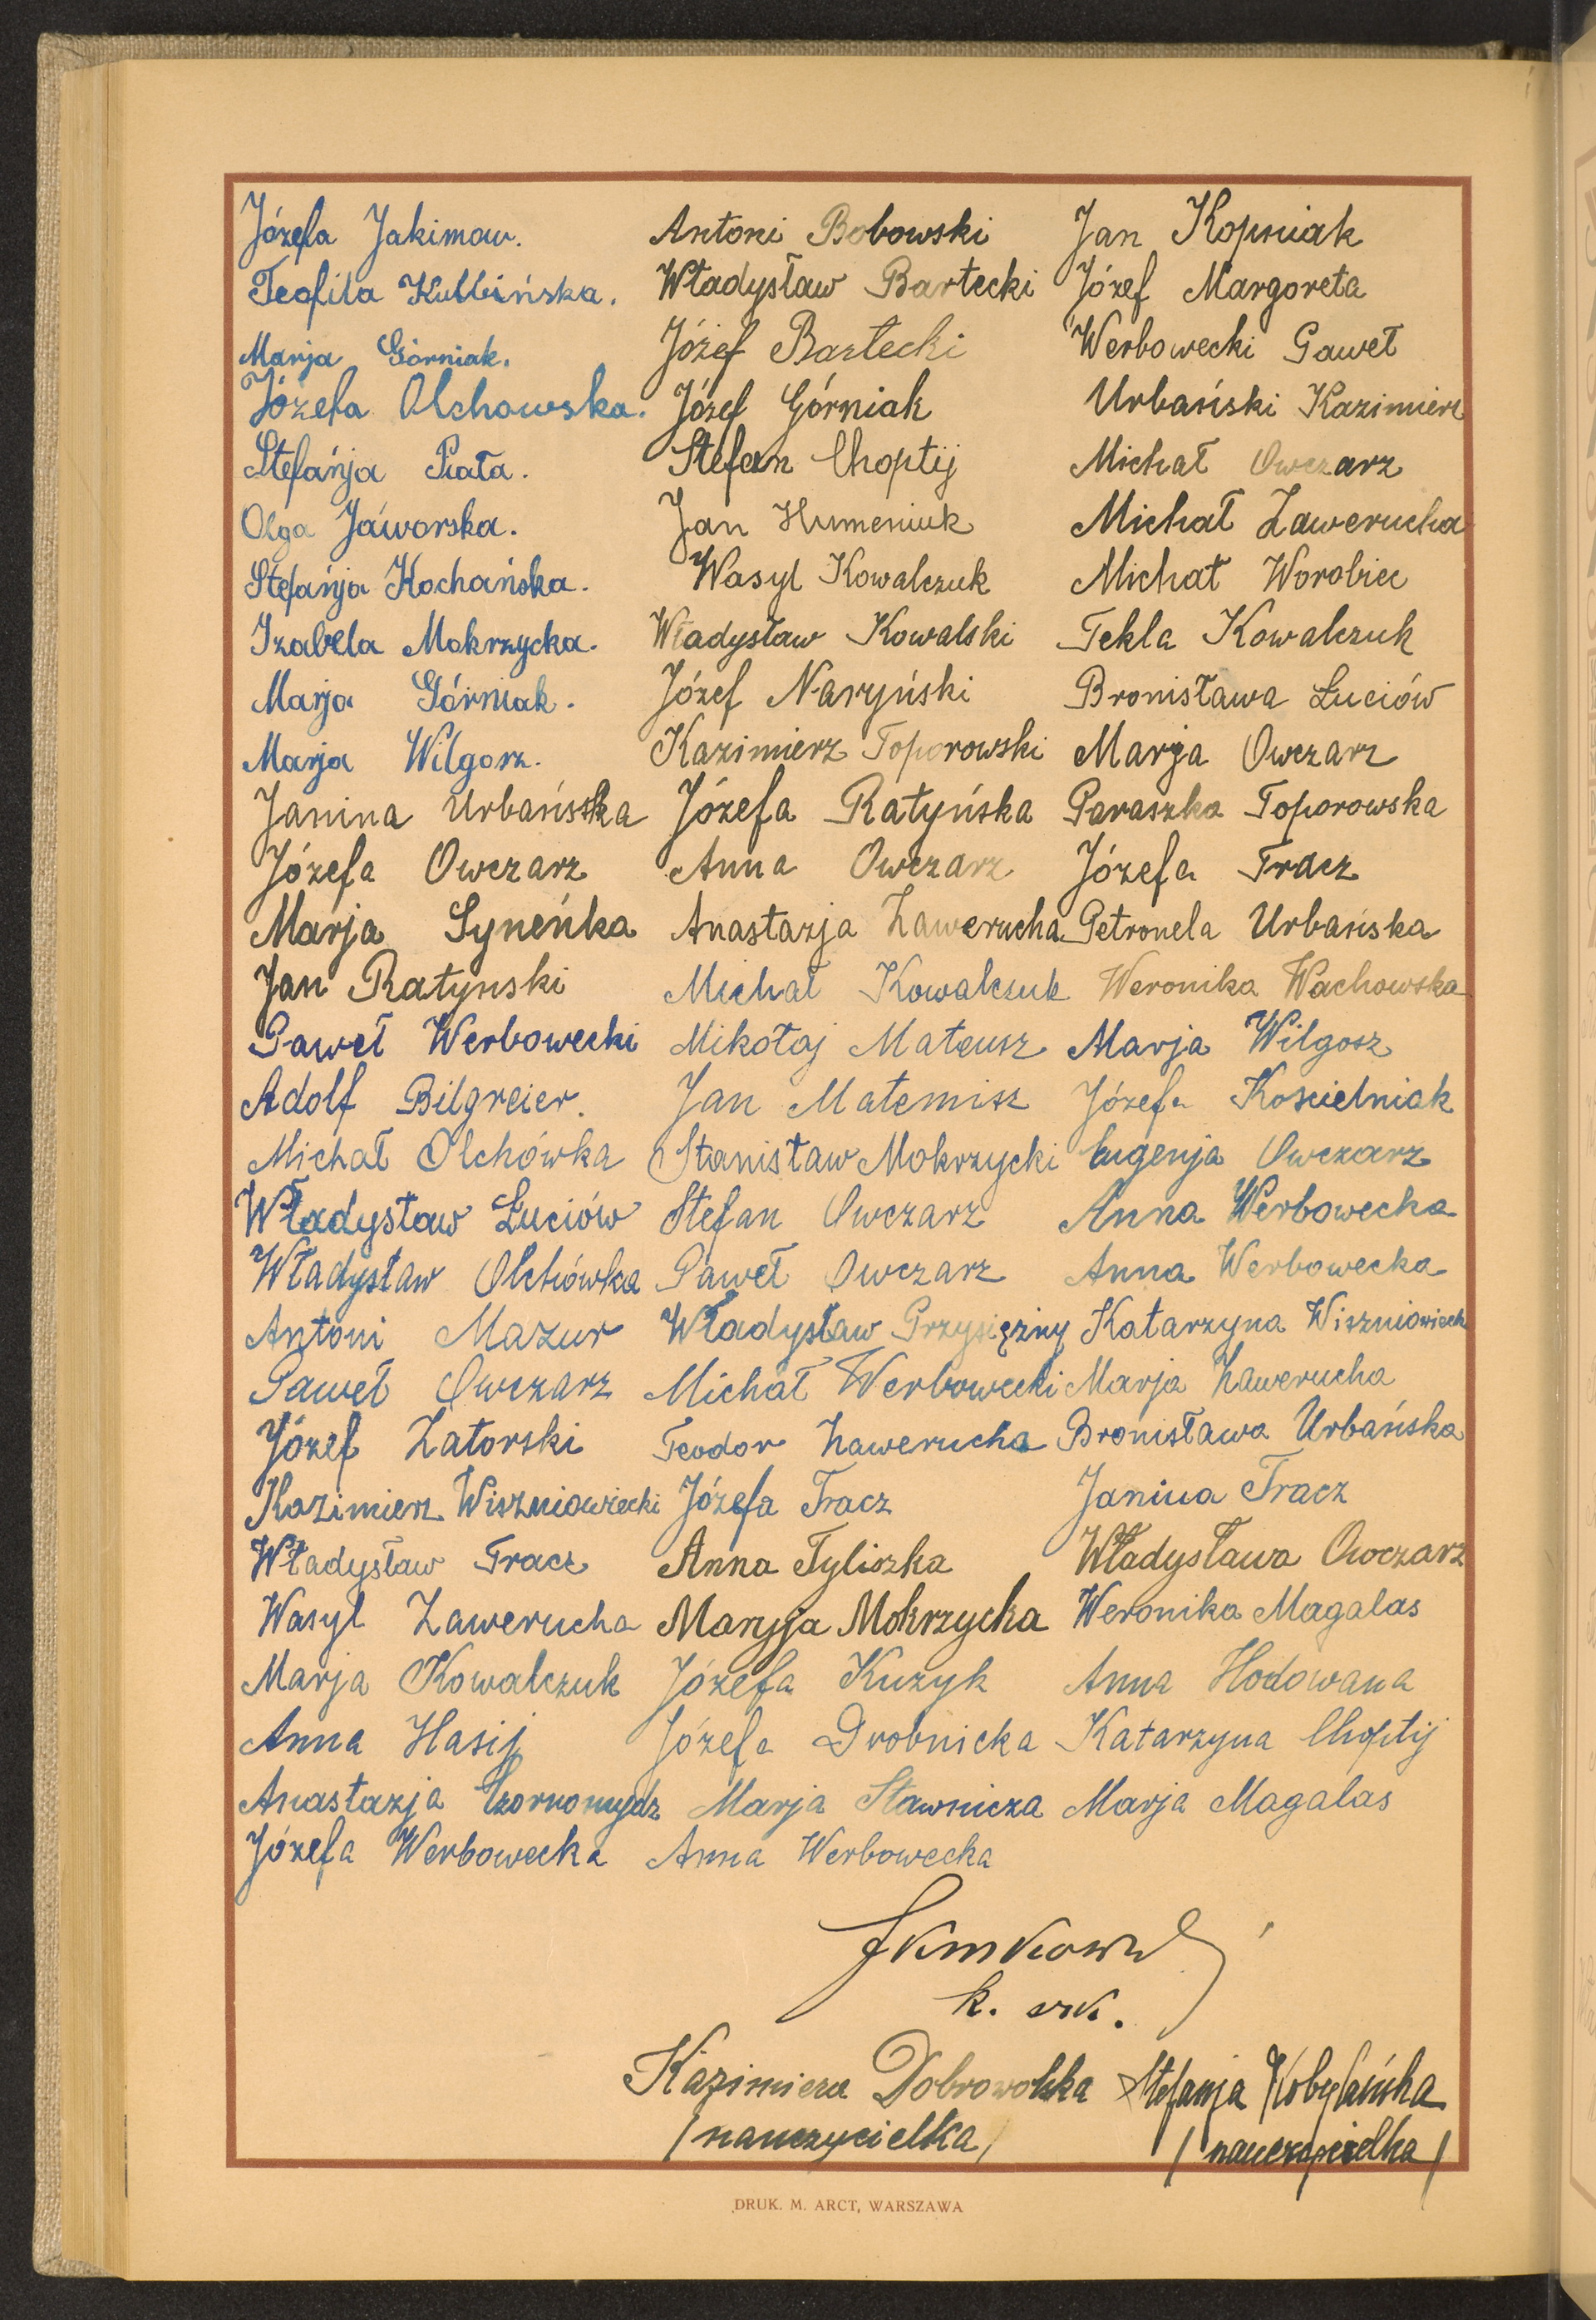 Józefa Jakimow. Antoni Bobowski Jan Kopniak
Teofila Kulbińska. Władysław Bartecki Józef Margoreta
Marja Górniak. Józef Bartecki Werbowecki Paweł
Józefa Olchowska. Józef Górniak Urbański Kazimierz
Stefańja Piata. Stefan Choptij Michał Owczarz
Olga Jaworska. Jan Humeniuk Michał Zawerucha
Stefańja Kochańska. Wasyl Kowalczuk Michał Worobiec
Izabela Mokrzycka. Władysław Kowalski Tekla Kowalczuk
Marja Górniak. Józef Naryński Bronisława Łuciów
Marja Wilgosz. Kazimierz Toporowski Marja Owczarz
Janina Urbańska Józefa Ratyńska Paraszka Toporowska
Józefa Owczarz Anna Owczarz Józefa Tracz
Marja Syneńka Anastazja Zawerucha Petronela Urbańska
Jan Ratynski Michał Kowalczuk Weronika Wachowska
Paweł Werbowecki Mikołaj Mateusz Marja Wilgosz
Adolf Bilgreier. Jan Matemisz Józefa Kościelniak
Michał Olchówka Stanisław Mokrzycki Eugenja Owczarz
Władysław Łuciów Stefan Owczarz Anna Werbowecka
Władysław Olchówka Paweł Owczarz Anna Werbowecka
Antoni Mazur Władysław Przysiężny Katarzyna Wiszniowieck
Paweł Owczarz Michał Werbowecki Marja Zawerucha
Józef Zatorski Teodor Zawerucha Bronisława Urbańska
Kazimierz Wiszniowiecki Józefa Tracz Janina Tracz
Władysław Tracz Anna Tyliszka Władysława Owczarz
Wasyl Zawerucha Maryja Mokrzycka Weronika Magalas
Marja Kowalczuk Józefa Kuzyk Anna Hodowana
Anna Hasij Józefa Drobnicka Katarzyna Choptij
Anastazja Czornomydz Marja Sławnicza Marja Magalas
Józefa Werbowecka Anna Werbowecka
Kazimiera Dobrowolska Stefanja Kobylańska
/nauczycielka/ /nauczycielka/
DRUK. M. ARCT, WARSZAWA